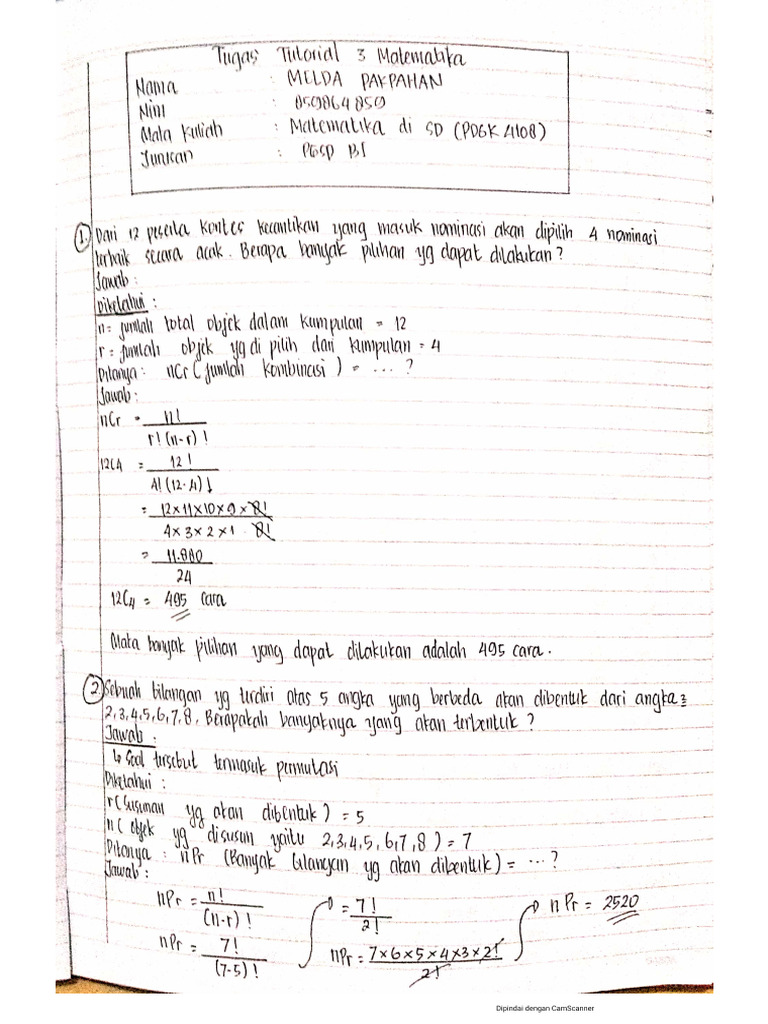 Tugas Tutorial 3 Matematika
Nama : MELDA PAKPAHAN
Nim : 859864859
Mata Kuliah : Matematika di SD (PDGK 4108)
Jurusan : PGSD BI
1. Dari 12 peserta kontes kecantikan yang masuk nominasi akan dipilih 4 nominasi
terbaik secara acak. Berapa banyak pilihan yg dapat dilakukan?
Jawab :
Diketahui :
n = jumlah total objek dalam kumpulan = 12
r = jumlah objek yg di pilih dari kumpulan = 4
Ditanya : nCr (jumlah kombinasi) = ... ?
Jawab :
nCr = n! / r! (n-r)!
12C4 = 12! / 4! (12-4)!
= 12×11×10×9×8! / 4×3×2×1 . 8!
= 11.880 / 24
12C4 = 495 cara
Maka banyak pilihan yang dapat dilakukan adalah 495 cara.
2. Sebuah bilangan yg terdiri atas 5 angka yang berbeda akan dibentuk dari angka :
2,3,4,5,6,7,8. Berapakah banyaknya yang akan terbentuk ?
Jawab :
↳ Soal tersebut termasuk permutasi
Diketahui :
r (susunan yg akan dibentuk) = 5
n ( objek yg disusun yaitu 2,3,4,5,6,7,8 ) = 7
Ditanya : nPr (Banyak bilangan yg akan dibentuk) = ... ?
Jawab :
nPr = n! / (n-r)!
nPr = 7! / (7-5)!
= 7! / 2!
nPr = 7×6×5×4×3×2! / 2!
nPr = 2520
Dipindai dengan CamScanner